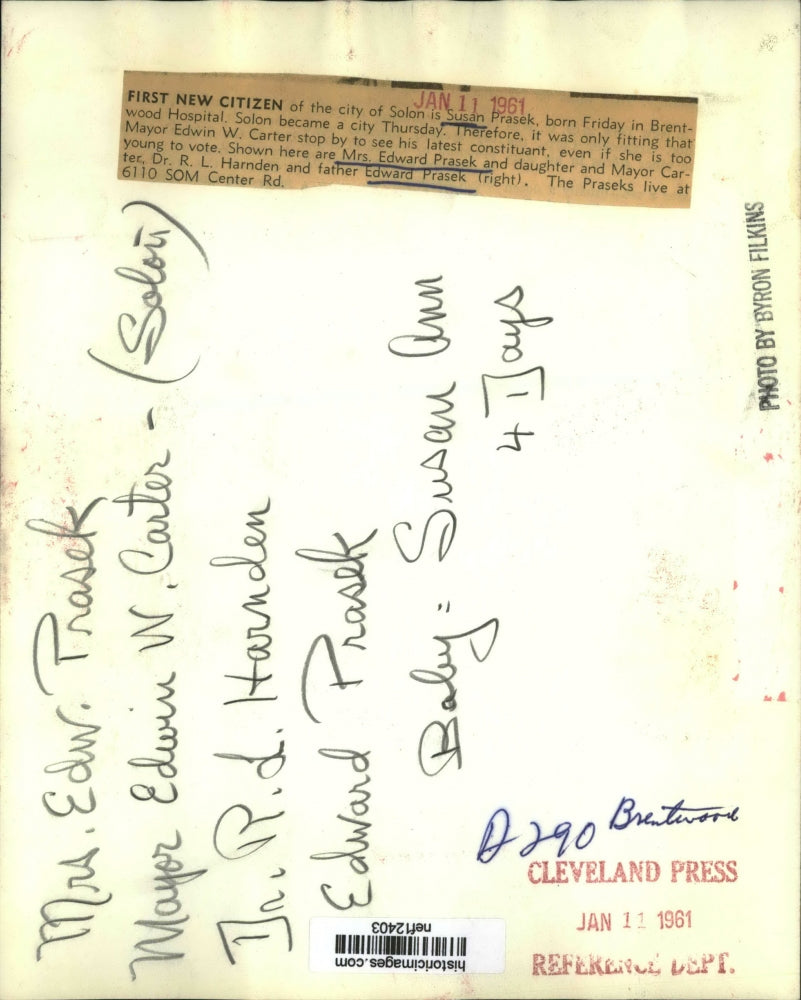 JAN 11 1961
FIRST NEW CITIZEN of the city of Solon is Susan Prasek, born Friday in Brent-
wood Hospital. Solon became a city Thursday. Therefore, it was only fitting that
Mayor Edwin W. Carter stop by to see his latest constituent, even if she is too
young to vote. Shown here are Mrs. Edward Prasek and daughter and Mayor Car-
ter, Dr. R. L. Harnden and father Edward Prasek (right). The Praseks live at
6110 SOM Center Rd.
PHOTO BY BYRON FILKINS
Mrs. Edw. Prasek
Mayor Edwin W. Carter - (Solon)
Dr. R. L. Harnden
Edward Prasek
Baby: Susan Ann
4 Days
D290 Brentwood
CLEVELAND PRESS
JAN 11 1961
REFERENCE DEPT.
historicimages.com
nef12403